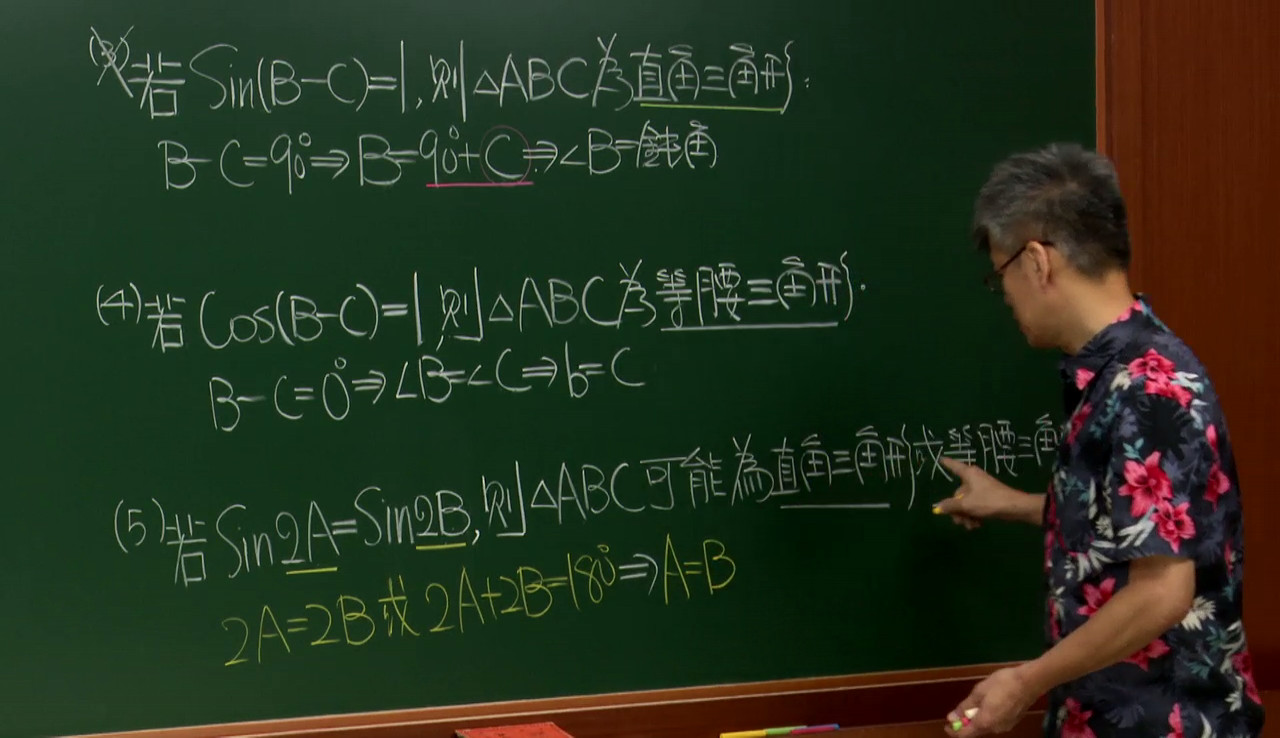 (3)若Sin(B-C)=1,則△ABC為直角三角形.
B-C=90°⇒B=90°+C⇒∠B=鈍角
(4)若Cos(B-C)=1,則△ABC為等腰三角形.
B-C=0°⇒∠B=∠C⇒b=c
(5)若Sin2A=Sin2B,則△ABC可能為直角三角形或等腰三角
2A=2B或2A+2B=180°⇒A=B